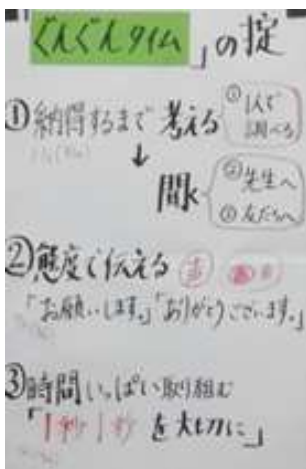 「ぐんぐんタイム」の掟
①納得するまで考える
①1人で
調べる
↓
聞く
②先生へ
③友だちへ
②態度で伝える 声
「お願いします。」「ありがとうございます。」
③時間いっぱい取り組む
「1秒1秒を大切に」